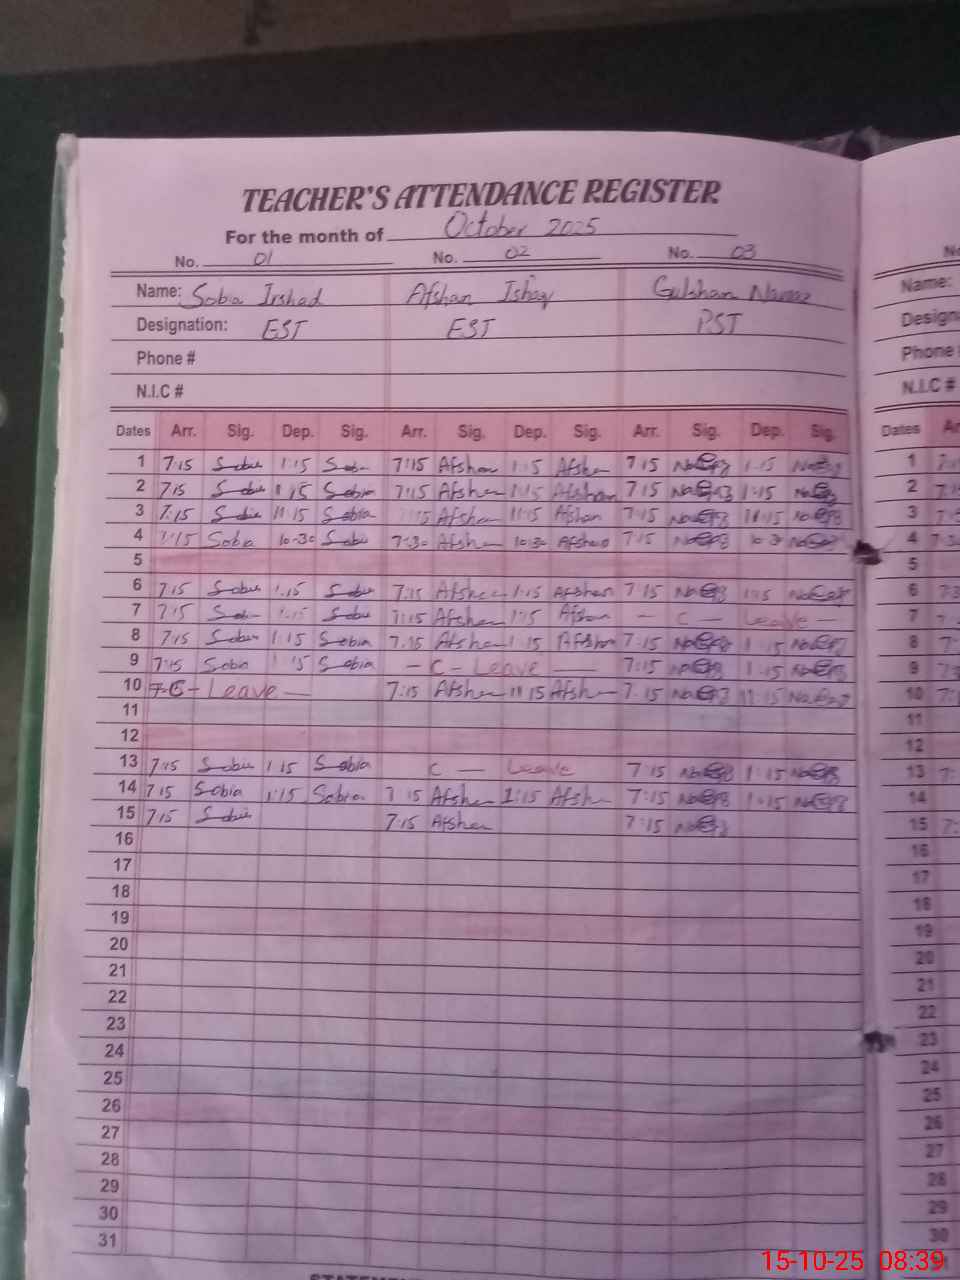 TEACHER'S ATTENDANCE REGISTER
For the month of October 2025
No. 01 No. 02 No. 03 No
Name: Sobia Irshad Afshan Ishaq Gulshan Name:
Designation: EST EST PST Design
Phone # Phone
N.I.C # N.I.C #
Dates Arr. Sig. Dep. Sig. Arr. Sig. Dep. Sig. Arr. Sig. Dep. Sig. Dates
1 7:15 Sobia 1:15 Sobia 7:15 Afshan 1:15 Afshan 7:15 1:15 1
2 7:15 Sobia 1:15 Sobia 7:15 Afshan 1:15 Afshan 7:15 1:15 2
3 7:15 Sobia 11:15 Sobia Afshan 11:15 Afshan 7:15 11:15 3
4 7:15 Sobia 10:30 Sobia 7:30 Afshan 10:30 Afshan 7:15 10:3 4
5 5
6 7:15 Sobia 1:15 Sobia 7:15 Afshan 1:15 Afshan 7:15 1:15 6
7 7:15 Sobia 1:15 Sobia 7:15 Afshan 1:15 Afshan - C - Leave - 7
8 7:15 Sobia 1:15 Sobia 7:15 Afshan 1:15 Afshan 7:15 1:15 8
9 7:15 Sobia 1:15 Sobia - C - Leave - 7:15 1:15 9
10 C - Leave - 7:15 Afshan 11:15 Afshan 7:15 11:15 10
11 11
12 12
13 7:15 Sobia 1:15 Sobia C - Leave 7:15 1:15 13
14 7:15 Sobia 1:15 Sobia 7:15 Afshan 1:15 Afshan 7:15 1:15 14
15 7:15 Sobia 7:15 Afshan 7:15 15
16 16
17 17
18 18
19 19
20 20
21 21
22 22
23 23
24 24
25 25
26 26
27 27
28 28
29 29
30 30
31
15-10-25 08:39